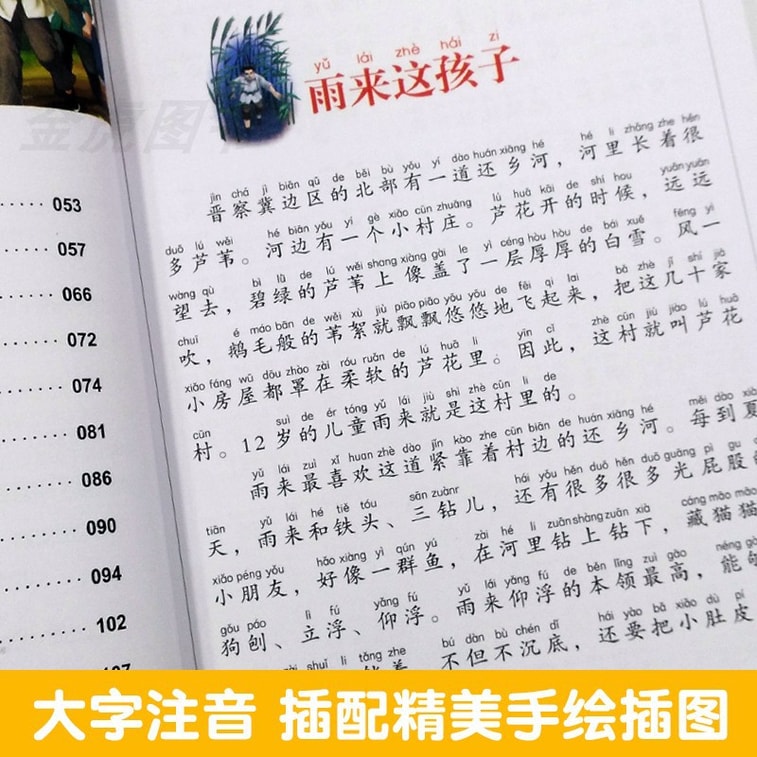 金虎图
053
057
066
072
074
081
086
090
094
102
yǔ lái zhè hái zi
雨来这孩子
jìn chá jì biān qū de běi bù yǒu yí dào huán xiāng hé hé li zhǎng zhe hěn
晋察冀边区的北部有一道还乡河，河里长着很
duō lú wěi hé biān yǒu yí gè xiǎo cūn zhuāng lú huā kāi de shí hou yuǎn yuǎn
多芦苇。河边有一个小村庄。芦花开的时候，远远
wàng qù bì lǜ de lú wěi shang xiàng gài le yì céng hòu hòu de bái xuě fēng yì
望去，碧绿的芦苇上像盖了一层厚厚的白雪。风一
chuī é máo bān de wěi xù jiù piāo piāo yōu yōu de fēi qi lai bǎ zhè jǐ shí jiā
吹，鹅毛般的苇絮就飘飘悠悠地飞起来，把这几十家
xiǎo fáng wū dōu zhào zài róu ruǎn de lú huā li yīn cǐ zhè cūn jiù jiào lú huā
小房屋都罩在柔软的芦花里。因此，这村就叫芦花
cūn suì de ér tóng yǔ lái jiù shì zhè cūn li de
村。12岁的儿童雨来就是这村里的。
yǔ lái zuì xǐ huan zhè dào jǐn kào zhe cūn biān de huán xiāng hé měi dào xià
雨来最喜欢这道紧靠着村边的还乡河。每到夏
tiān yǔ lái hé tiě tóu sān zuànr hái yǒu hěn duō hěn duō guāng pì gu
天，雨来和铁头、三钻儿，还有很多很多光屁股
xiǎo péng yǒu hǎo xiàng yì qún yú zài hé li zuān shàng zuān xià cáng māo māo
小朋友，好像一群鱼，在河里钻上钻下，藏猫猫
gǒu páo lì fú yǎng fú yǔ lái yǎng fú de běn lǐng zuì gāo néng
狗刨、立浮、仰浮。雨来仰浮的本领最高，能
shuǐ li tǎng zhe bú dàn bù chén dǐ hái yào bǎ xiǎo dù pí
不但不沉底，还要把小肚皮
大字注音 插配精美手绘插图